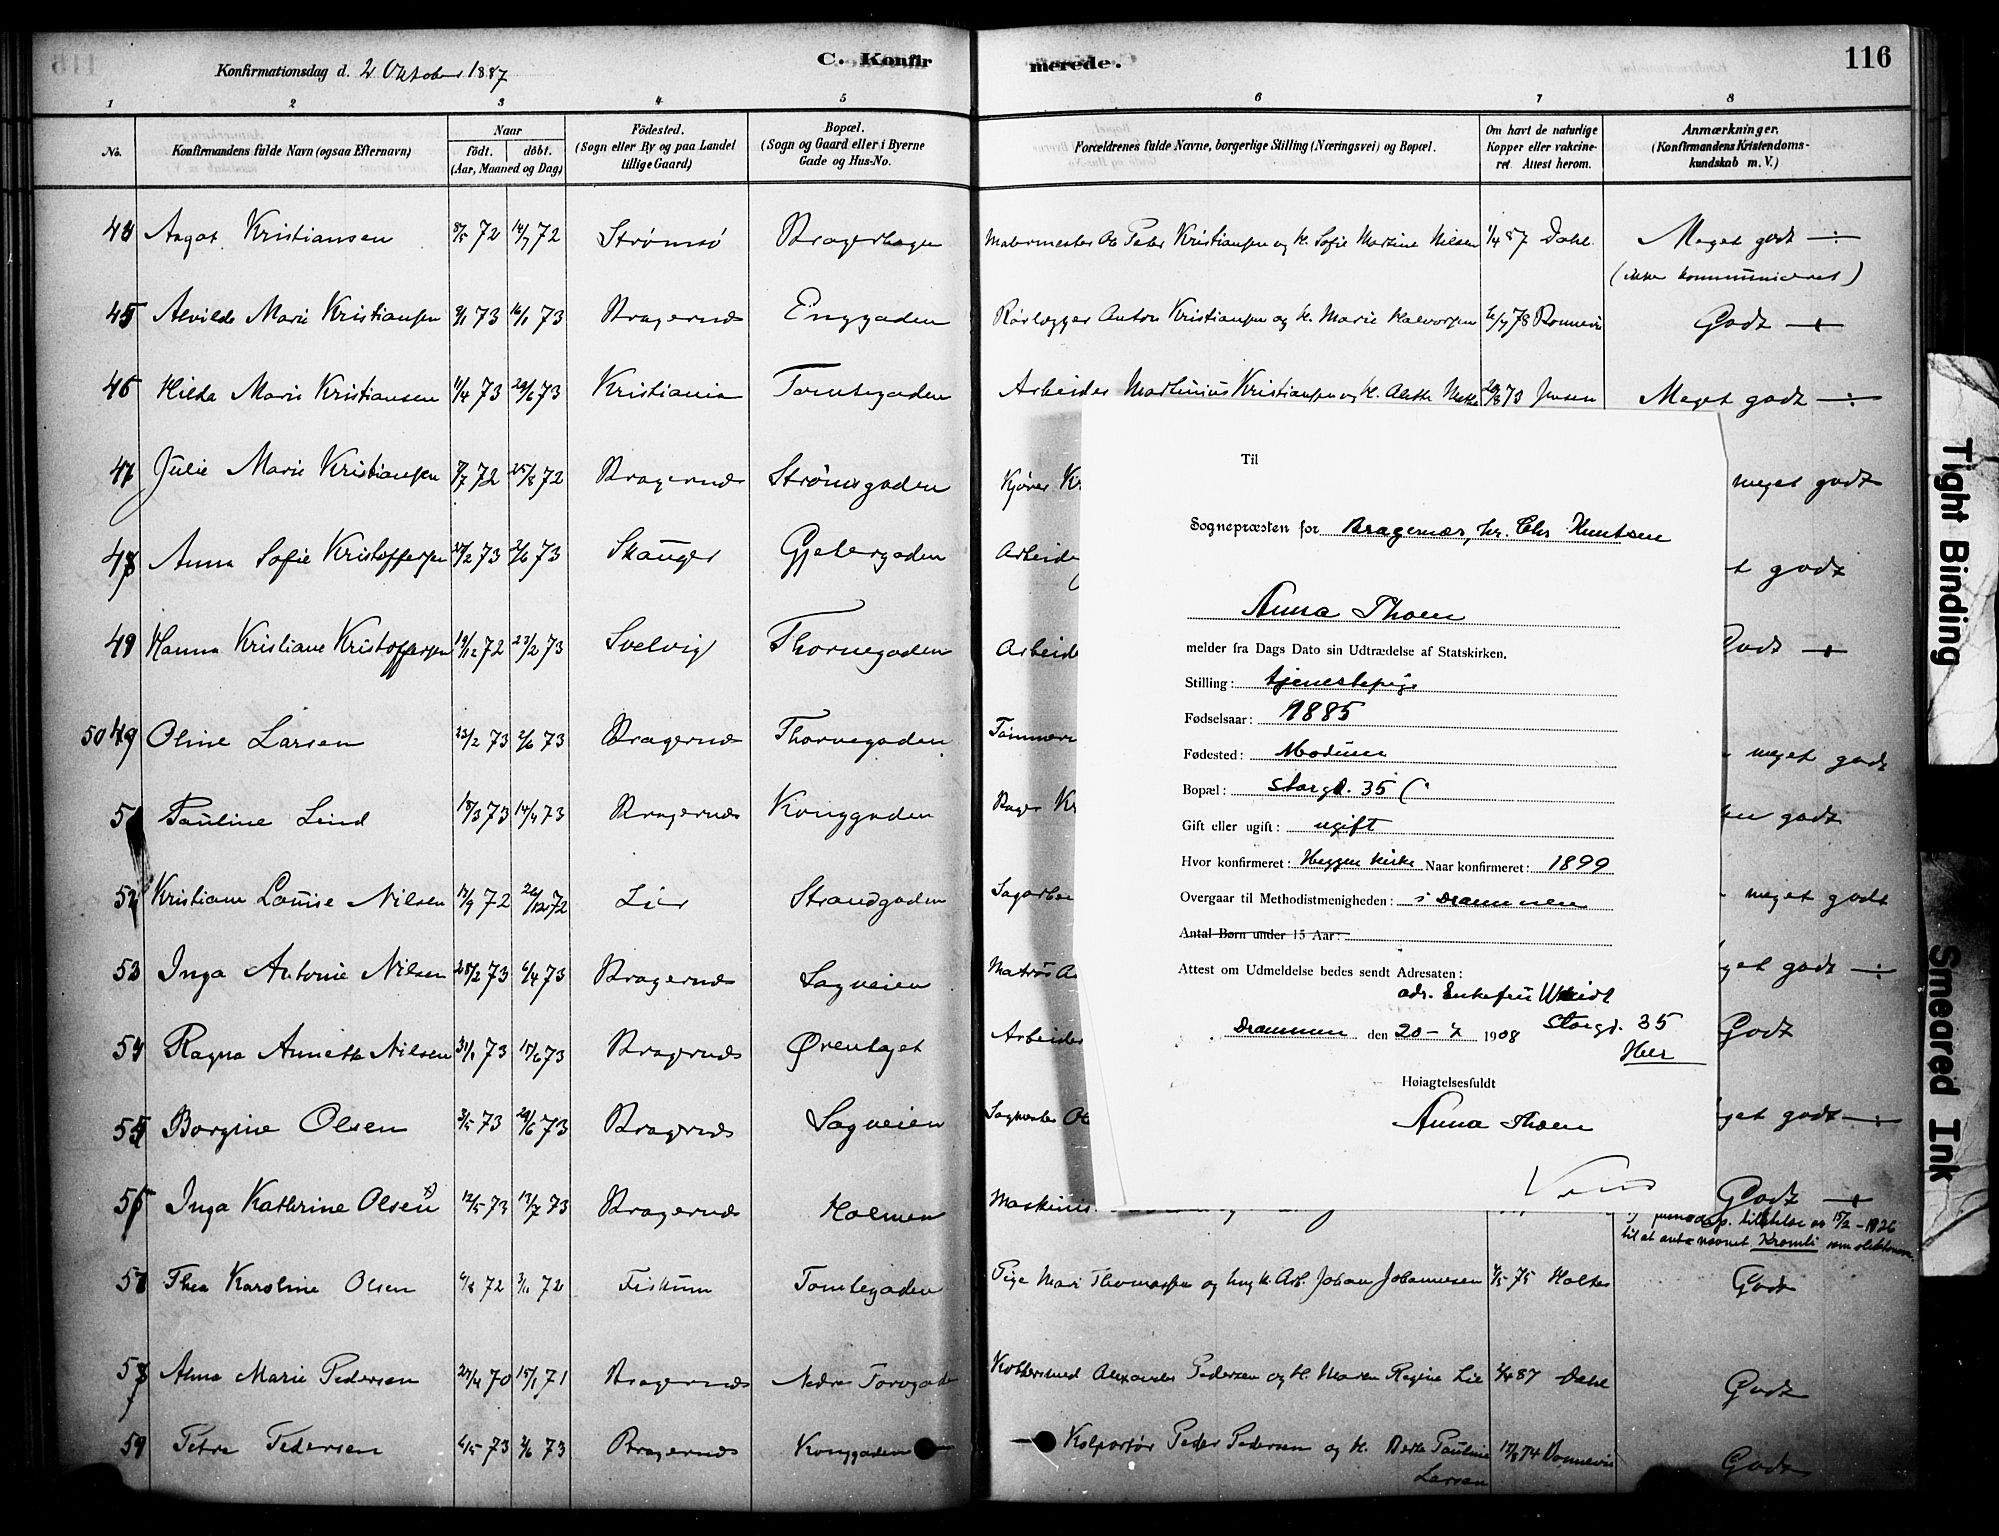 Konfirmationsdag d. 2 Oktober 1887
C. Konfirmerede.
116
1 2 3 4 5 6 7 8
No.
Konfirmandens fulde Navn (ogsaa Efternavn)
Naar
födt. döbt.
(Aar, Maaned og Dag)
Födested.
(Sogn eller By og paa Landet
tillige Gaard)
Bopæl.
(Sogn og Gaard eller i Byerne
Gade og Hus-No.
Forældrenes fulde Navne, borgerlige Stilling (Næringsvei) og Bopæl.
Om havt de naturlige
Kopper eller vakcine-
ret. Attest herom.
Anmærkninger.
(Konfirmandens Kristendoms-
kundskab m. V.)
Aagot Kristiansen 8/5 72 14/7 72 Strømsø Malermester Peter Kristiansen og H. Sofie Martine Nilsen 1/4 87 Dahl. Meget godt
(ikke kommuniceret)
45 Alvilde Marie Kristiansen 73 73 Bragernæs Enggaden Rørlægger Anton Kristiansen og H. Marie Halvorsen 78 Godt
46 Hilda Marie Kristiansen 11/4 73 29/6 73 Kristiania Tomtegaden Arbeider Marthinius Kristiansen og H. 73 Jensen Meget godt
47 Julie Marie Kristiansen 7/7 72 25/8 72 Bragernæs Strømsgaden Kjører meget godt
48 Anna Sofie Kristoffersen 73 2/6 73 Skauger Gjetergaden Arbeide godt
49 Hanna Kristiane Kristoffersen 19/12 72 23/2 73 Svelvig Thornegaden Arbeide Godt
50 49 Oline Larsen 23/2 73 2/6 73 Bragernæs Thornegaden Tømmer meget godt
51 Pauline Lind 18/3 73 14/4 73 Bragernæs Konggaden godt
52 Kristiane Louise Nilsen 17/9 72 26/12 72 Lier Strandgaden Sagarbei meget godt
53 Inga Antonie Nilsen 28/2 73 6/4 73 Bragernæs Sagveien Matros godt
54 Ragna Annette Nilsen 31/1 73 15/6 73 Bragernæs Ørentaget Arbeider Godt
55 Borgine Olsen 3/5 73 29/6 73 Bragernæs Sagveien Sagmester godt
56 Inga Kathrine Olsen x) 12/5 73 13/7 73 Bragernæs Holmen Maskinis Godt
tilladelse av 15/2-1926
til at anta navnet Kromli som slektsnavn
57 Thea Karoline Olsen 6/8 72 3/11 72 Fiskum Tomtegaden Pige Mari Thomassen og Arb. Johan Johannesen 75 Holter Godt
58 Anna Marie Pedersen 27/4 70 15/1 71 Bragernæs Nedre Torvgade Alexander Pedersen og H. Maren Regine Lie 87 Dahl Godt
59 Petra Pedersen 4/5 73 2/6 73 Bragernæs Konggaden Kolportør Peder Pedersen og H. Berte Pauline 74
Larsen Godt
Til
Sognepræsten for Bragernæs, hr. Chr Knutsen
Anna Thoen
melder fra Dags Dato sin Udtrædelse af Statskirken.
Stilling: tjenestepige
Fødselsaar: 1885
Fødested: Modum
Bopæl: Storgd. 35
Gift eller ugift: ugift
Hvor konfirmeret: Heggen kirke Naar konfirmeret: 1899
Overgaar til Methodistmenigheden: i Drammen
Antal Børn under 15 Aar:
Attest om Udmeldelse bedes sendt Adresaten:
adr. Enkefru
Storgd. 35
Her
Drammen den 20-7 1908
Høiagtelsesfuldt
Anna Thoen
Tight Binding
Smeared Ink